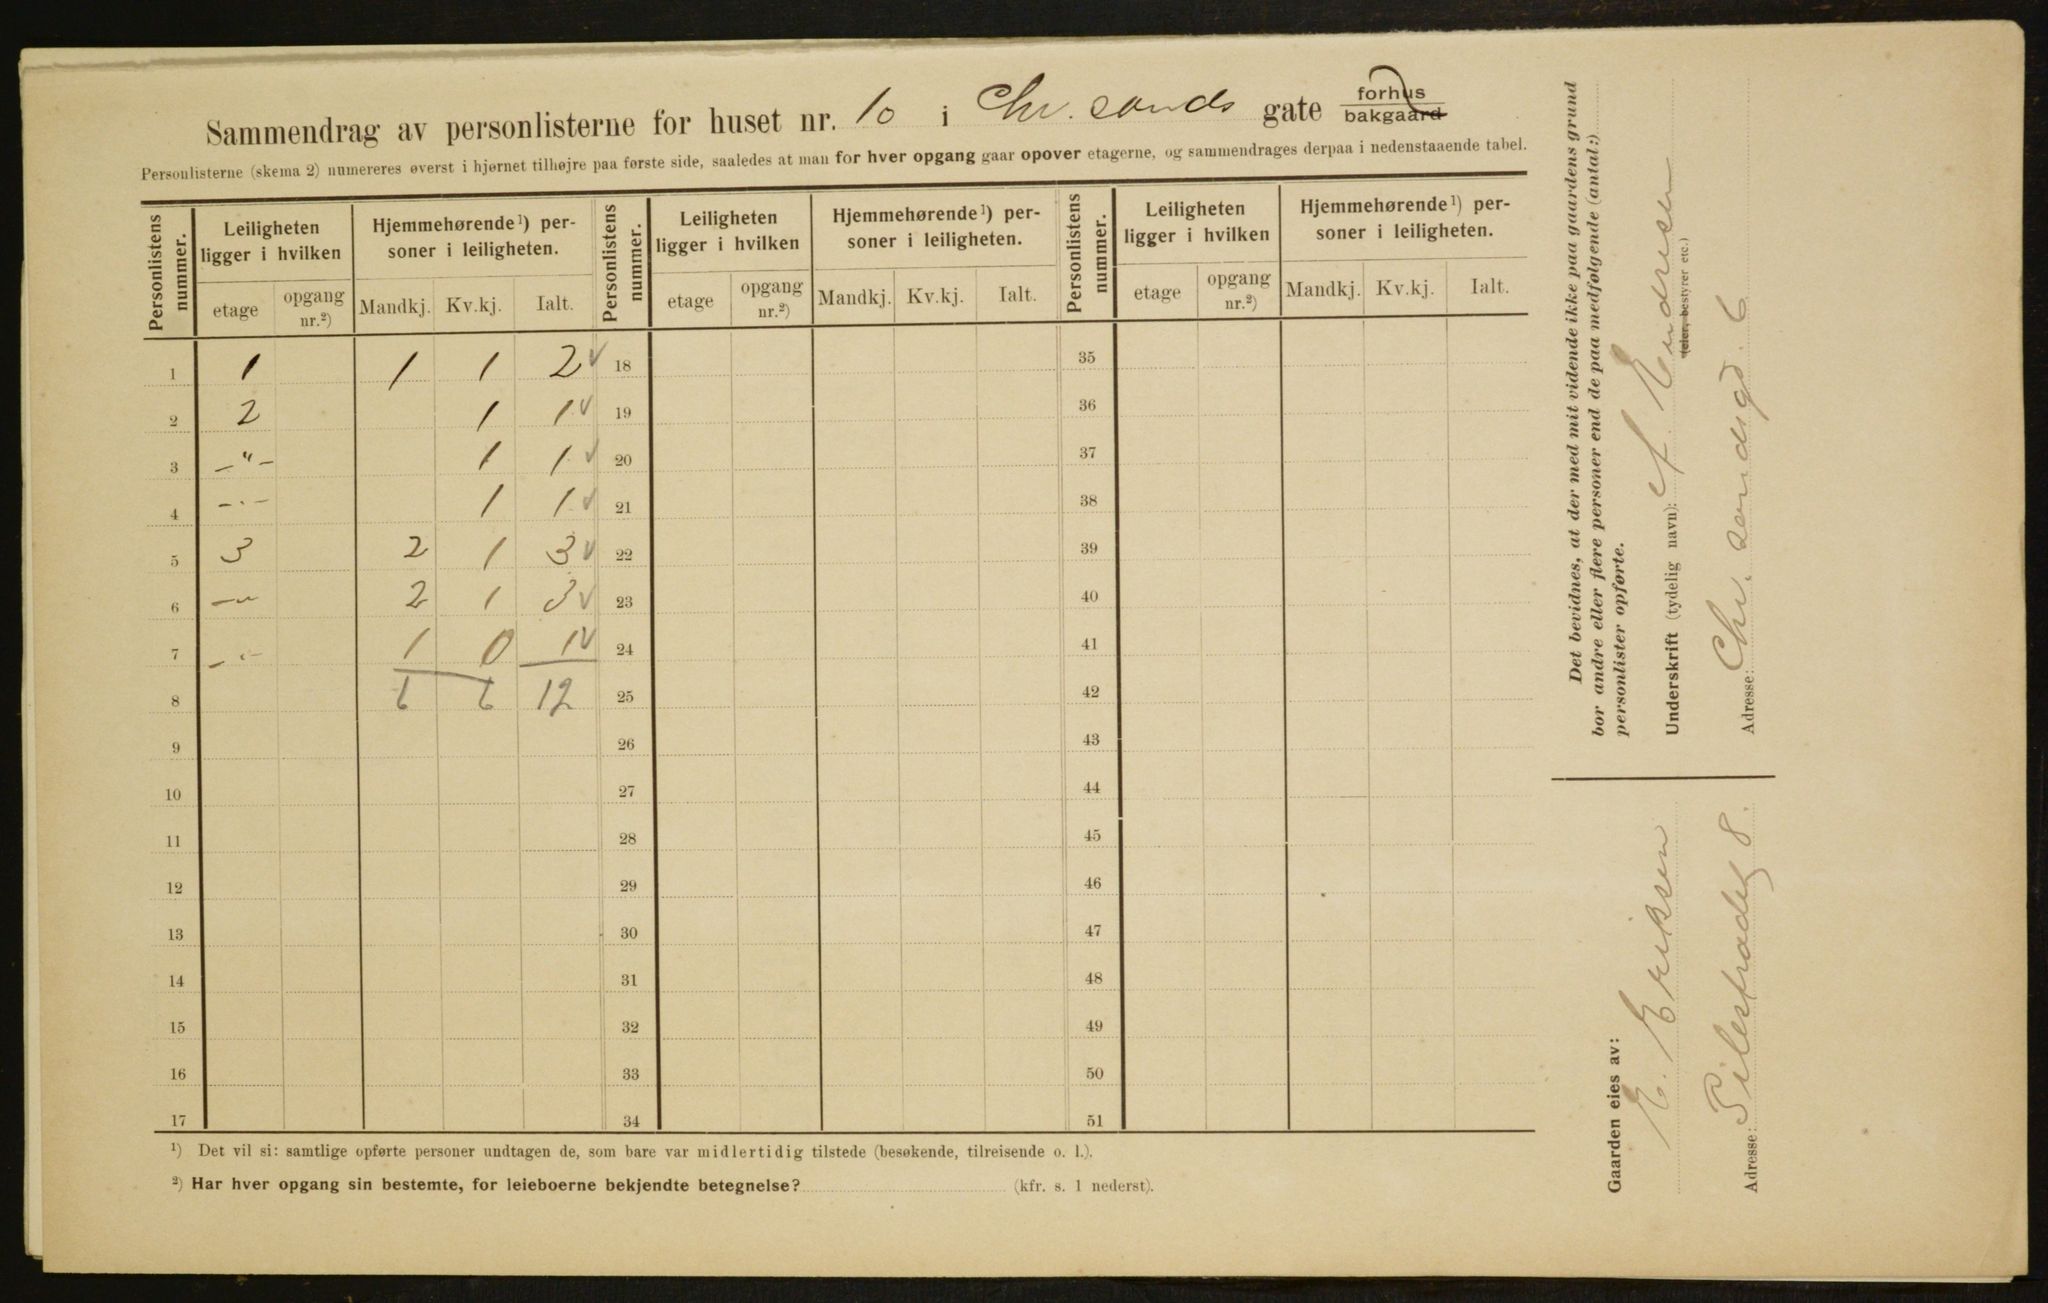 Sammendrag av personlisterne for huset nr. 10 i Chr. sands gate forhus
bakgaard
Personlisterne (skema 2) numereres øverst i hjørnet tilhøjre paa første side, saaledes at man for hver opgang gaar opover etagerne, og sammendrages derpaa i nedenstaaende tabel.
Personlistens nummer. Leiligheten ligger i hvilken Hjemmehørende ¹) personer i leiligheten. Personlistens nummer. Leiligheten ligger i hvilken Hjemmehørende ¹) personer i leiligheten. Personlistens nummer. Leiligheten ligger i hvilken Hjemmehørende ¹) personer i leiligheten.
etage opgang nr.²) Mandkj. Kv.kj. Ialt. etage opgang nr.²) Mandkj. Kv.kj. Ialt. etage opgang nr.²) Mandkj. Kv.kj. Ialt.
1 1 1 1 2 ✓ 18 35
2 2 1 1 ✓ 19 36
3 -"- 1 1 ✓ 20 37
4 -"- 1 1 ✓ 21 38
5 3 2 1 3 ✓ 22 39
6 -"- 2 1 3 ✓ 23 40
7 -"- 1 0 1 ✓ 24 41
8 6 6 12 25 42
9 26 43
10 27 44
11 28 45
12 29 46
13 30 47
14 31 48
15 32 49
16 33 50
17 34 51
¹) Det vil si: samtlige opførte personer undtagen de, som bare var midlertidig tilstede (besøkende, tilreisende o. l.).
²) Har hver opgang sin bestemte, for leieboerne bekjendte betegnelse? (kfr. s. 1 nederst).
Det bevidnes, at der med mit vidende ikke paa gaardens grund
bor andre eller flere personer end de paa medfølgende (antal:)
personlister opførte.
Underskrift (tydelig navn): A. Endresen
(eier, bestyrer etc.)
Adresse: Chr. sandsgd. 6
Gaarden eies av:
E. Eriksen
Adresse: Pilestrædet 8.